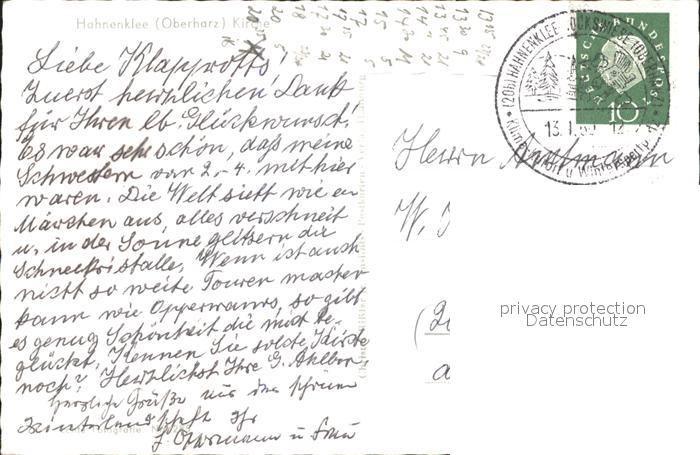 Hahnenklee (Oberharz) Kirche
Liebe Klapprotts!
Zuerst herzlichen Dank
für Ihren lb. Glückwunsch!
Es war sehr schön, daß meine
Schwestern von 2.-4. mit hier
waren. Die Welt sieht wie ein
Märchen aus, alles verschneit
u. in der Sonne glitzern die
Schneekristalle. Wenn ich auch
nicht so weite Touren machen
kann wie Oppermanns, so gibt
es genug Schönheit die mich be-
glückt. Kennen Sie solche Kirche
noch? Herzlichst Ihre G. Ahlborn
Herzliche Grüße aus der schönen
Winterlandschaft Ihr
J. Oppermann u Frau
(20b) HAHNENKLEE-BOCKSWIESE (OBERHARZ)
13.1.60
DEUTSCHE BUNDESPOST
10
Herrn Amtmann
W.
privacy protection
Datenschutz